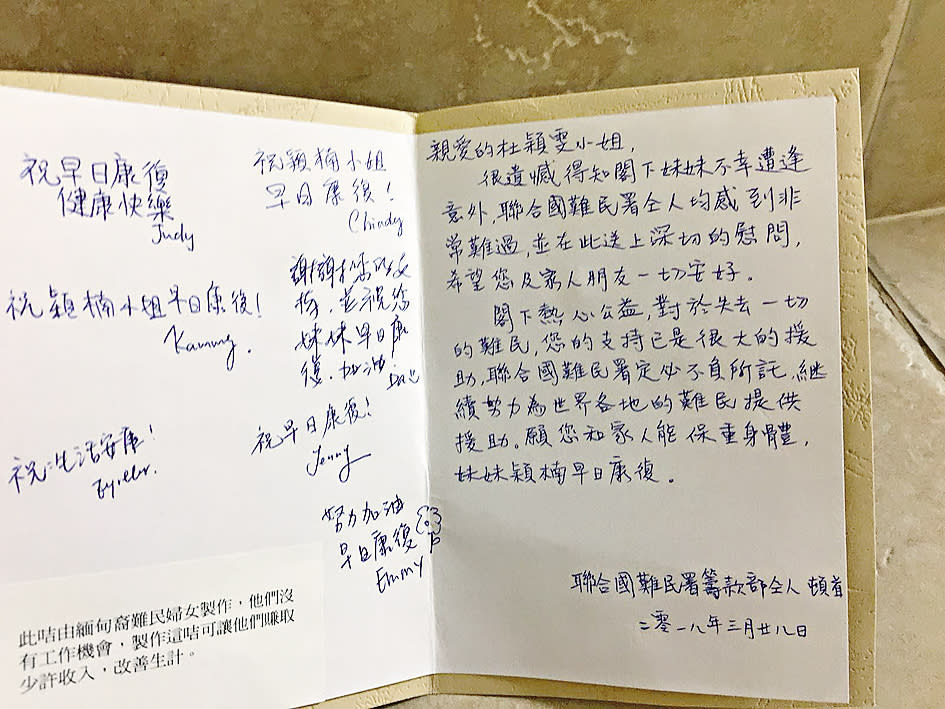 祝早日康復
健康快樂
Judy
祝穎楠小姐
早日康復！
Chindy
祝穎楠小姐早日康復！
謝謝您的支
持，並祝您
妹妹早日康
復，加油
祝生活安康！
祝早日康復！
Jenny
努力加油
早日康復
Emmy
此咭由緬甸裔難民婦女製作，他們沒
有工作機會，製作這咭可讓他們賺取
少許收入，改善生計。
親愛的杜穎雯小姐，
很遺憾得知閣下妹妹不幸遭逢
意外，聯合國難民署仝人均感到非
常難過，並在此送上深切的慰問，
希望您及家人朋友一切安好。
閣下熱心公益，對於失去一切
的難民，您的支持已是很大的援
助，聯合國難民署定必不負所託，繼
續努力為世界各地的難民提供
援助。願您和家人能保重身體，
妹妹穎楠早日康復。
聯合國難民署籌款部仝人 頓首
二零一八年三月廿八日